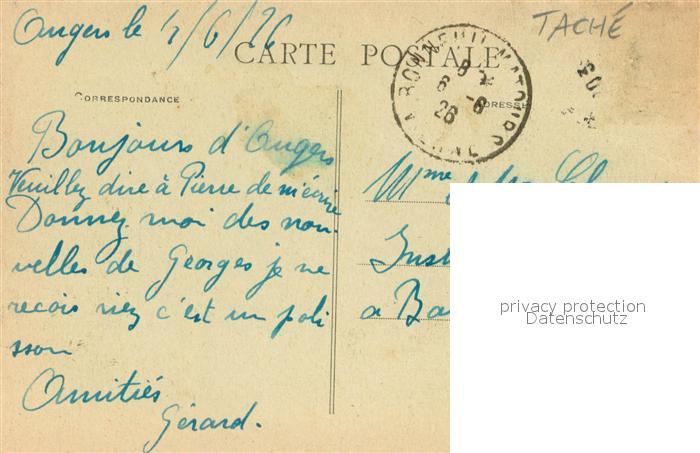 Angers le 4/6/26
TACHÉ
CARTE POSTALE
CORRESPONDANCE
ADRESSE
BONNEUIL-MATOURS
8
6 - 6
26
Bonjours d'Angers
Veuillez dire à Pierre de m'écrire
Donnez moi des nou-
velles de Georges je ne
reçois riez c'est un poli
sson
Amitiés
Gérard.
Mme
Inst
a Bo
privacy protection
Datenschutz